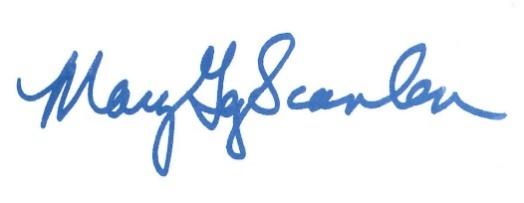 Mary Gay Scanlon